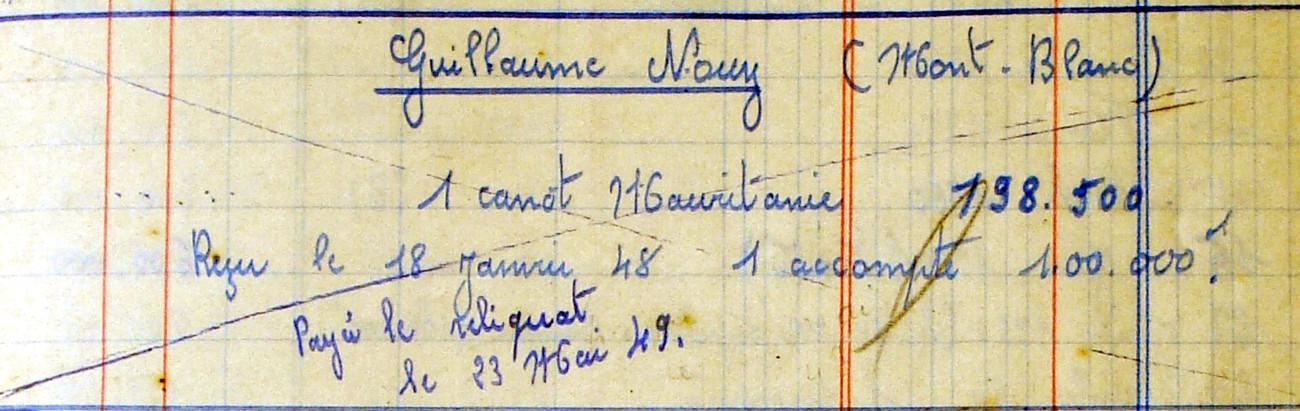 Guillaume Nouy (Mont-Blanc)
1 canot Mauritanie 198.500
Reçu le 18 Janvier 48 1 accompte 100.000f
Payé le reliquat
le 23 Mai 49.